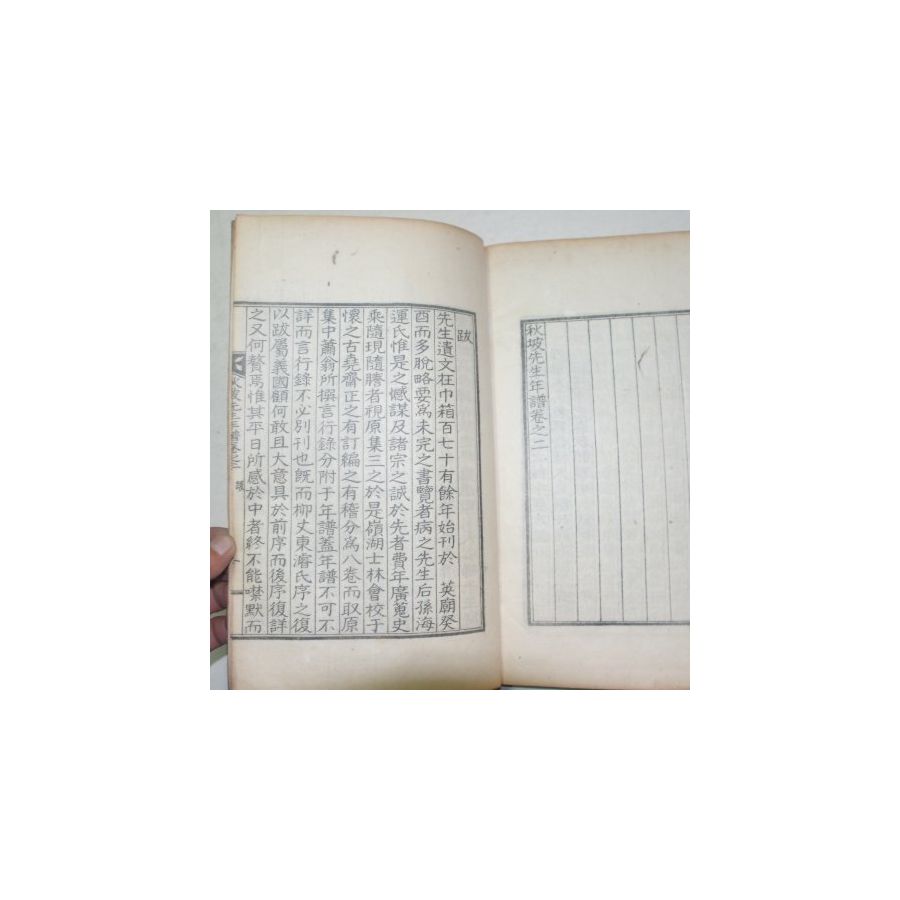 秋坡先生年譜卷之二
跋
先生遺文在巾箱百七十有餘年始刊於 英廟癸
酉而多脫略要爲未完之書覽者病之先生后孫海
運氏惟是之憾謀及諸宗之誠於先者費年廣蒐史
乘隨現隨謄者視原集三之於是嶺湖士林會校于
懷之古堯齋正之有訂編之有稽分爲八卷而取原
集中蕭翁所撰言行錄分附于年譜蓋年譜不可不
詳而言行錄不必別刊也旣而柳丈東濬氏序之復
以跋屬義國顧何敢且大意具於前序而後序復詳
之又何贅焉惟其平日所感於中者終不能噤默而